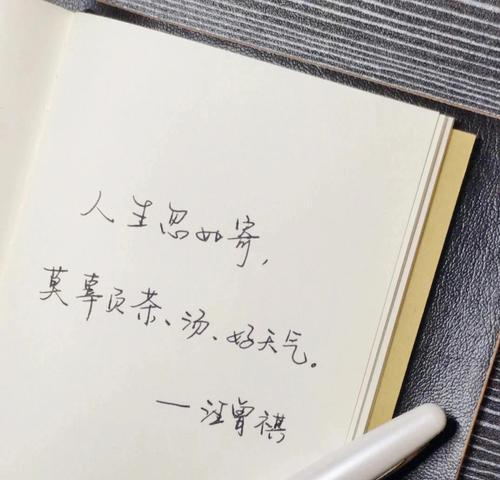 人生忽如寄，
莫辜负茶、汤、好天气。
—汪曾祺